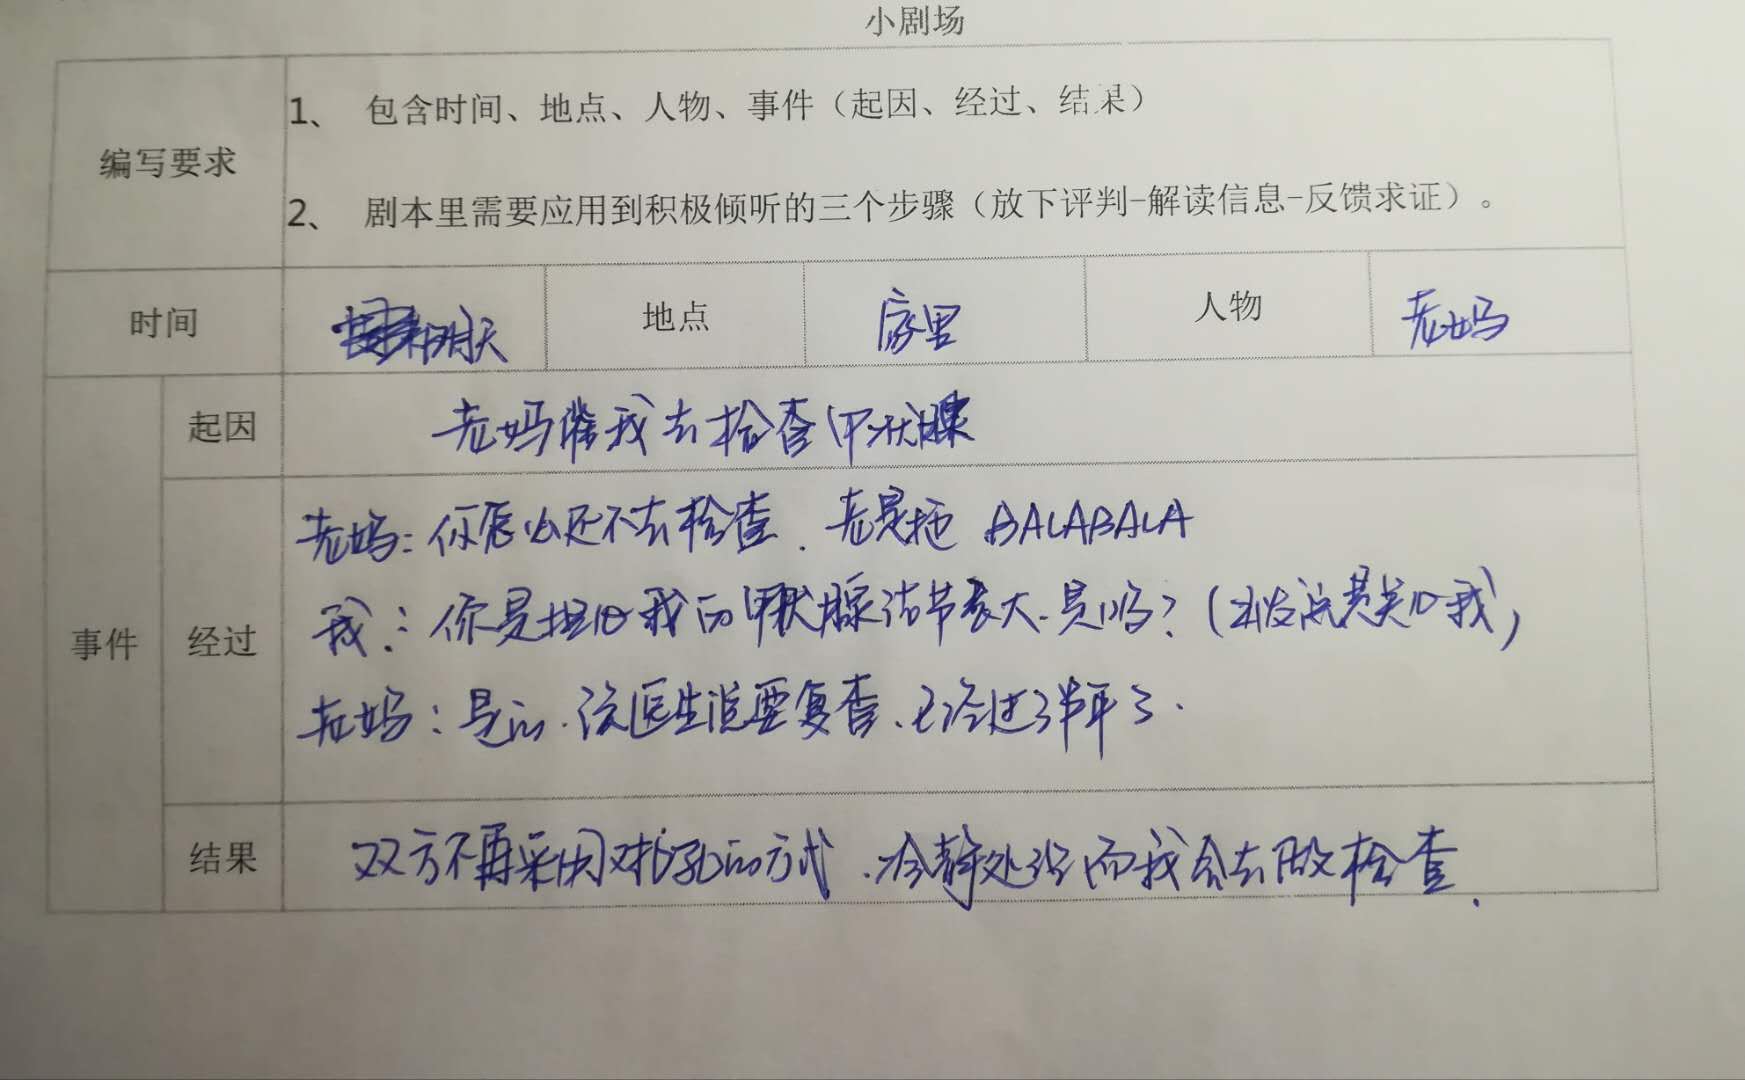 小剧场
编写要求
1、 包含时间、地点、人物、事件（起因、经过、结果）
2、 剧本里需要应用到积极倾听的三个步骤（放下评判-解读信息-反馈求证）。
时间 明天 地点 家里 人物 老妈
事件
起因 老妈催我去检查甲状腺
经过
老妈：你怎么还不去检查、老是拖 BALABALA
我：你是担心我的甲状腺结节变大、是吗？（出发点是关心我）
老妈：是的、医生说要复查、已经过了半年了.
结果 双方不再采用对抗的方式、冷静处理而我会去做检查.